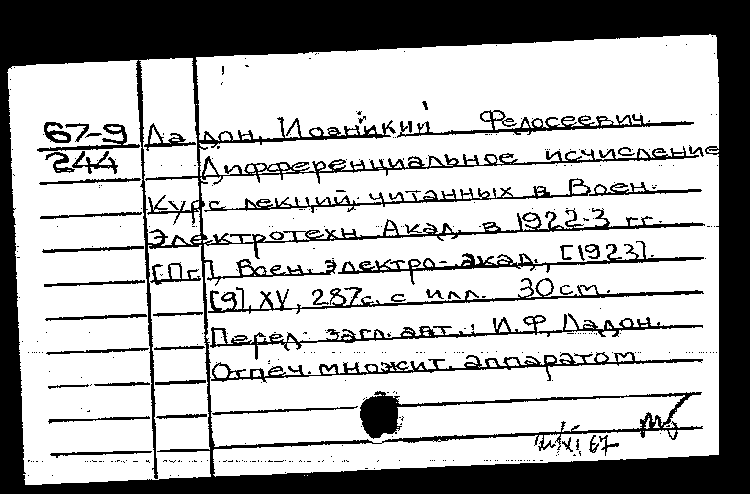 67-9 Ладон, Иоаникий Федосеевич.
244 Дифференциальное исчисление
Курс лекций, читанных в Воен.
Электротехн. Акад. в 1922-3 гг.
[Пг.], Воен. электро-акад., [1923].
[9], XV, 287с. с илл. 30см.
Перед. загл. авт.: И.Ф. Ладон.
Отпеч. множит. аппаратом
XI 67